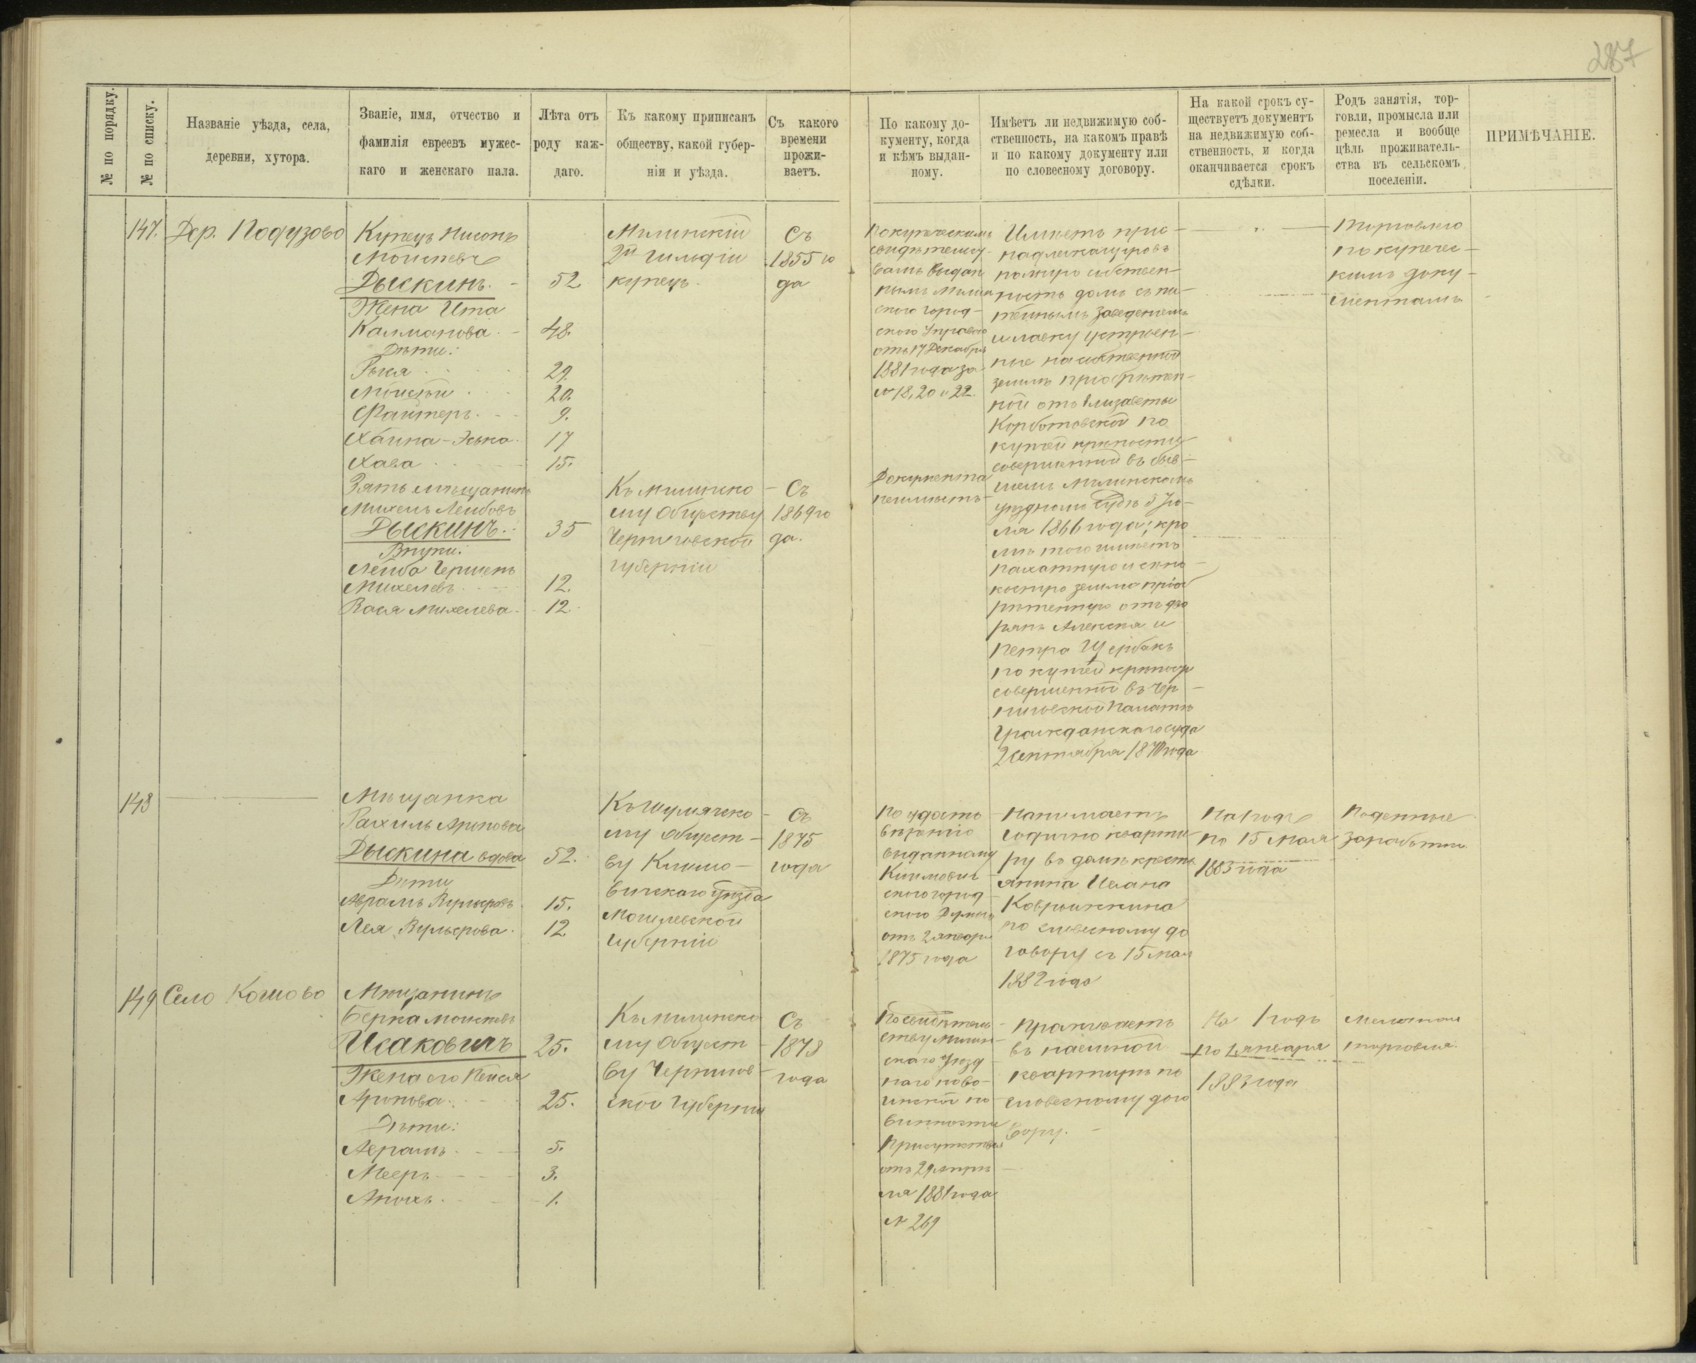 287
№ по порядку.
№ по списку.
Названіе уѣзда, села,
деревни, хутора.
Званіе, имя, отчество и
фамилія евреевъ мужес-
каго и женскаго пала.
Лѣта отъ
роду каж-
даго.
Къ какому приписанъ
обществу, какой губер-
ніи и уѣзда.
Съ какого
времени
прожи-
ваетъ.
По какому до-
кументу, когда
и кѣмъ выдан-
ному.
Имѣетъ ли недвижимую соб-
ственность, на какомъ правѣ
и по какому документу или
по словесному договору.
На какой срокъ су-
ществуетъ документъ
на недвижимую соб-
ственность, и когда
оканчивается срокъ
сдѣлки.
Родъ занятія, тор-
говли, промысла или
ремесла и вообще
цѣль проживатель-
ства въ сельскомъ
поселеніи.
ПРИМѢЧАНІЕ.
147.
Дер. Подузово
Купецъ Нисонъ
Моисеевъ
Дыскинъ.
Жена Ита
Калманова
Дѣти:
Рыся
Моисей
Файтель
Хаина-Эська
Хава
Зять мѣщанинъ
Михель Лейбовъ
Дыскинъ.
Внуки:
Лейба Герцель
Михелевъ
Вася Михелева
52
48.
29.
20.
9.
17
15.
35
12.
12
Мглинскій
2й гильдіи
купецъ
Къ Мглинско-
му Обществу
Черниговской
губерніи
Съ
1855 го
да
Съ
1869 го
да.
По купеческимъ
свидѣтельст-
вамъ выдан
нымъ Мглин
скою город-
скою Управою
отъ 17 Декабря
1881 года за
№ 18, 20 и 22
Документа
неимѣетъ
Имѣетъ при-
надлежащую
ность домъ съ пи-
тейнымъ заведеніемъ
и лавку устроен-
ные на собственной
землѣ пріобрѣтен-
ной отъ Елизаветы
Корботовской по
купчей крѣпости
совершенной въ быв-
шемъ Мглинскомъ
уѣздномъ Судѣ 8 Iю-
ля 1866 года; кро
мѣ того имѣетъ
пахатную и сѣно
косную землю пріоб
рѣтенную отъ дво
рянъ Алексѣя и
Петра Щербакъ
по купчей крѣпости
совершенной въ Чер-
ниговской Палатѣ
Гражданскаго суда
2 Сентября 1870 года
Торговлею
по купечес-
кимъ доку-
ментамъ
148
Мѣщанка
Рахиль Аронова
Дыскина вдова
Дѣти
Абрамъ Вульфовъ
Лея Вульфова.
52.
15.
12
Къ Шумячско-
му общест-
ву Климо-
вичскаго уѣзда
Могилевской
губерніи
Съ
1875
года
По удосто-
вѣренію
выданному
Климович-
скою город
скою Думою
отъ 2 января
1875 года
Нанимаетъ
годично кварти
ру въ домѣ кресть
янина Ивана
Коврыжкина
по словесному до
говору съ 15 мая
1882 года
На годъ
по 15 мая
1883 года
Поденные
заработки
149
Село Кошово
Мѣщанинъ
Берка Моисеевъ
Исаковичъ
Жена его Пейся
Аронова
Дѣти:
Абрамъ
Мееръ
25.
25.
5.
3.
1.
Къ Мглинско
му общест-
ву Чернигов-
ской губерніи
Съ
1878
года
По свидѣтель-
ству Мглин-
скаго Уѣзд
наго по во-
инской по-
винности
Присутствія
отъ 29 апрѣ-
ля 1881 года
№ 269
Проживаетъ
въ наемной
квартирѣ по
словесному дого
вору.
На 1 годъ
по 1 января
1883 года
Мелочная
торговля